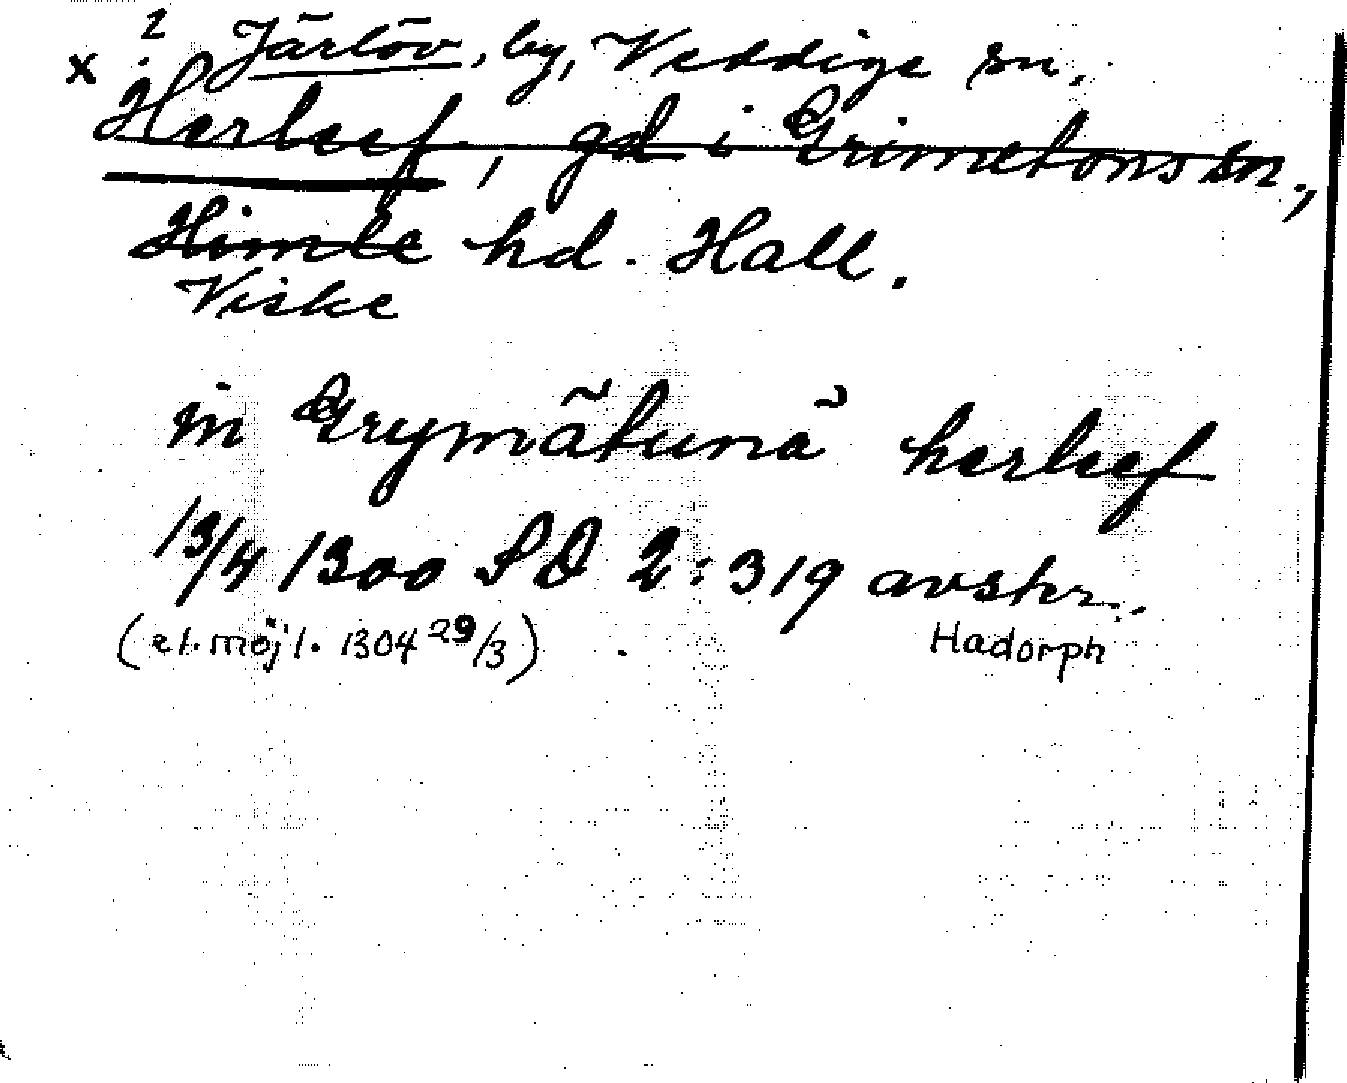 ? Järlöv, by, Veddige sn.
x Herleef, gd i Grimetons sn.,
Himle hd. Hall.
Viske
in Grymātunā herleef
13/4 1300 SD 2:319 avskr.
(el. möjl. 1304 29/3) Hadorph